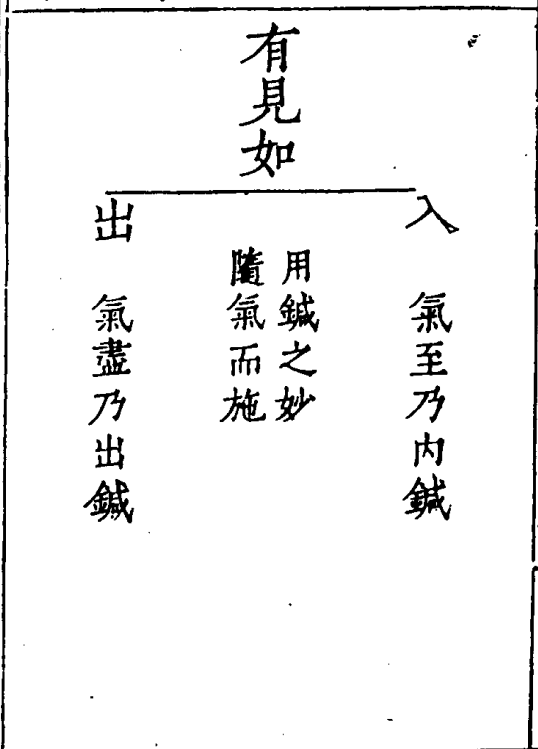 有見如
入
氣至乃内鍼
用鍼之妙
隨氣而施
出
氣盡乃出鍼